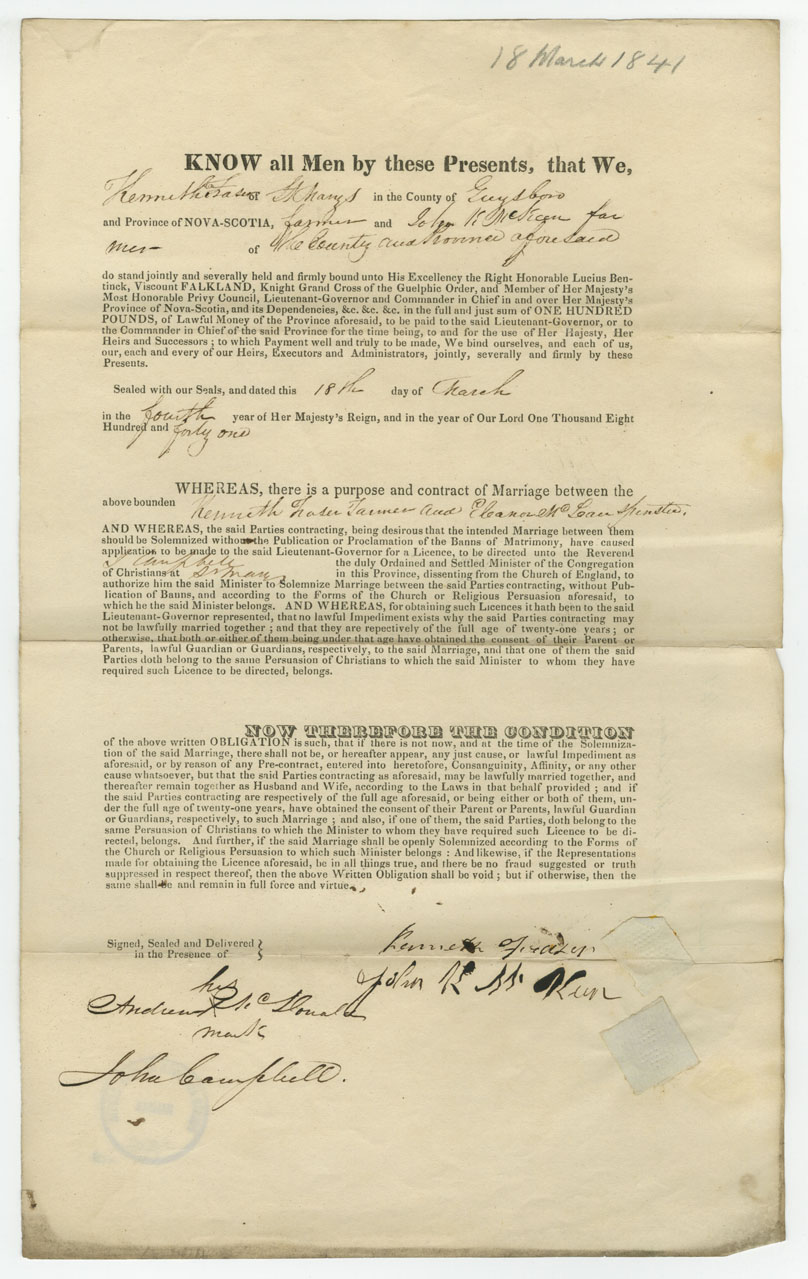 18 March 1841
KNOW all Men by these Presents, that We,
Kenneth Fraser of St Marys in the County of Guysboro
and Province of NOVA-SCOTIA, farmer and John K McKeen far
mer of the County and Province aforesaid
do stand jointly and severally held and firmly bound unto His Excellency the Right Honorable Lucius Ben-
tinck, Viscount FALKLAND, Knight Grand Cross of the Guelphic Order, and Member of Her Majesty's
Most Honorable Privy Council, Lieutenant-Governor and Commander in Chief in and over Her Majesty's
Province of Nova-Scotia, and its Dependencies, &c. &c. &c. in the full and just sum of ONE HUNDRED
POUNDS, of Lawful Money of the Province aforesaid, to be paid to the said Lieutenant-Governor, or to
the Commander in Chief of the said Province for the time being, to and for the use of Her Majesty, Her
Heirs and Successors ; to which Payment well and truly to be made, We bind ourselves, and each of us,
our, each and every of our Heirs, Executors and Administrators, jointly, severally and firmly by these
Presents.
Sealed with our Seals, and dated this 18th day of March
in the fourth year of Her Majesty's Reign, and in the year of Our Lord One Thousand Eight
Hundred and forty one
WHEREAS, there is a purpose and contract of Marriage between the
above bounden Kenneth Fraser Farmer and Eleanor McLean Spinster,
AND WHEREAS, the said Parties contracting, being desirous that the intended Marriage between them
should be Solemnized without the Publication or Proclamation of the Banns of Matrimony, have caused
application to be made to the said Lieutenant-Governor for a Licence, to be directed unto the Reverend
J Campbell the duly Ordained and Settled Minister of the Congregation
of Christians at St Mary, in this Province, dissenting from the Church of England, to
authorize him the said Minister to Solemnize Marriage between the said Parties contracting, without Pub-
lication of Banns, and according to the Forms of the Church or Religious Persuasion aforesaid, to
which he the said Minister belongs. AND WHEREAS, for obtaining such Licences it hath been to the said
Lieutenant-Governor represented, that no lawful Impediment exists why the said Parties contracting may
not be lawfully married together ; and that they are repectively of the full age of twenty-one years ; or
otherwise, that both or either of them being under that age have obtained the consent of their Parent or
Parents, lawful Guardian or Guardians, respectively, to the said Marriage, and that one of them the said
Parties doth belong to the same Persuasion of Christians to which the said Minister to whom they have
required such Licence to be directed, belongs.
NOW THEREFORE THE CONDITION
of the above written OBLIGATION is such, that if there is not now, and at the time of the Solemniza-
tion of the said Marriage, there shall not be, or hereafter appear, any just cause, or lawful Impediment as
aforesaid, or by reason of any Pre-contract, entered into heretofore, Consanguinity, Affinity, or any other
cause whatsoever, but that the said Parties contracting as aforesaid, may be lawfully married together, and
thereafter remain together as Husband and Wife, according to the Laws in that behalf provided ; and if
the said Parties contracting are respectively of the full age aforesaid, or being either or both of them, un-
der the full age of twenty-one years, have obtained the consent of their Parent or Parents, lawful Guardian
or Guardians, respectively, to such Marriage ; and also, if one of them, the said Parties, doth belong to the
same Persuasion of Christians to which the Minister to whom they have required such Licence to be di-
rected, belongs. And further, if the said Marriage shall be openly Solemnized according to the Forms of
the Church or Religious Persuasion to which such Minister belongs : And likewise, if the Representations
made for obtaining the Licence aforesaid, be in all things true, and there be no fraud suggested or truth
suppressed in respect thereof, then the above Written Obligation shall be void ; but if otherwise, then the
same shall be and remain in full force and virtue.
Signed, Sealed and Delivered
in the Presence of
Kenneth Frazer
John K Mc Keen
his
Andrew X McDonald
mark
John Campbell.